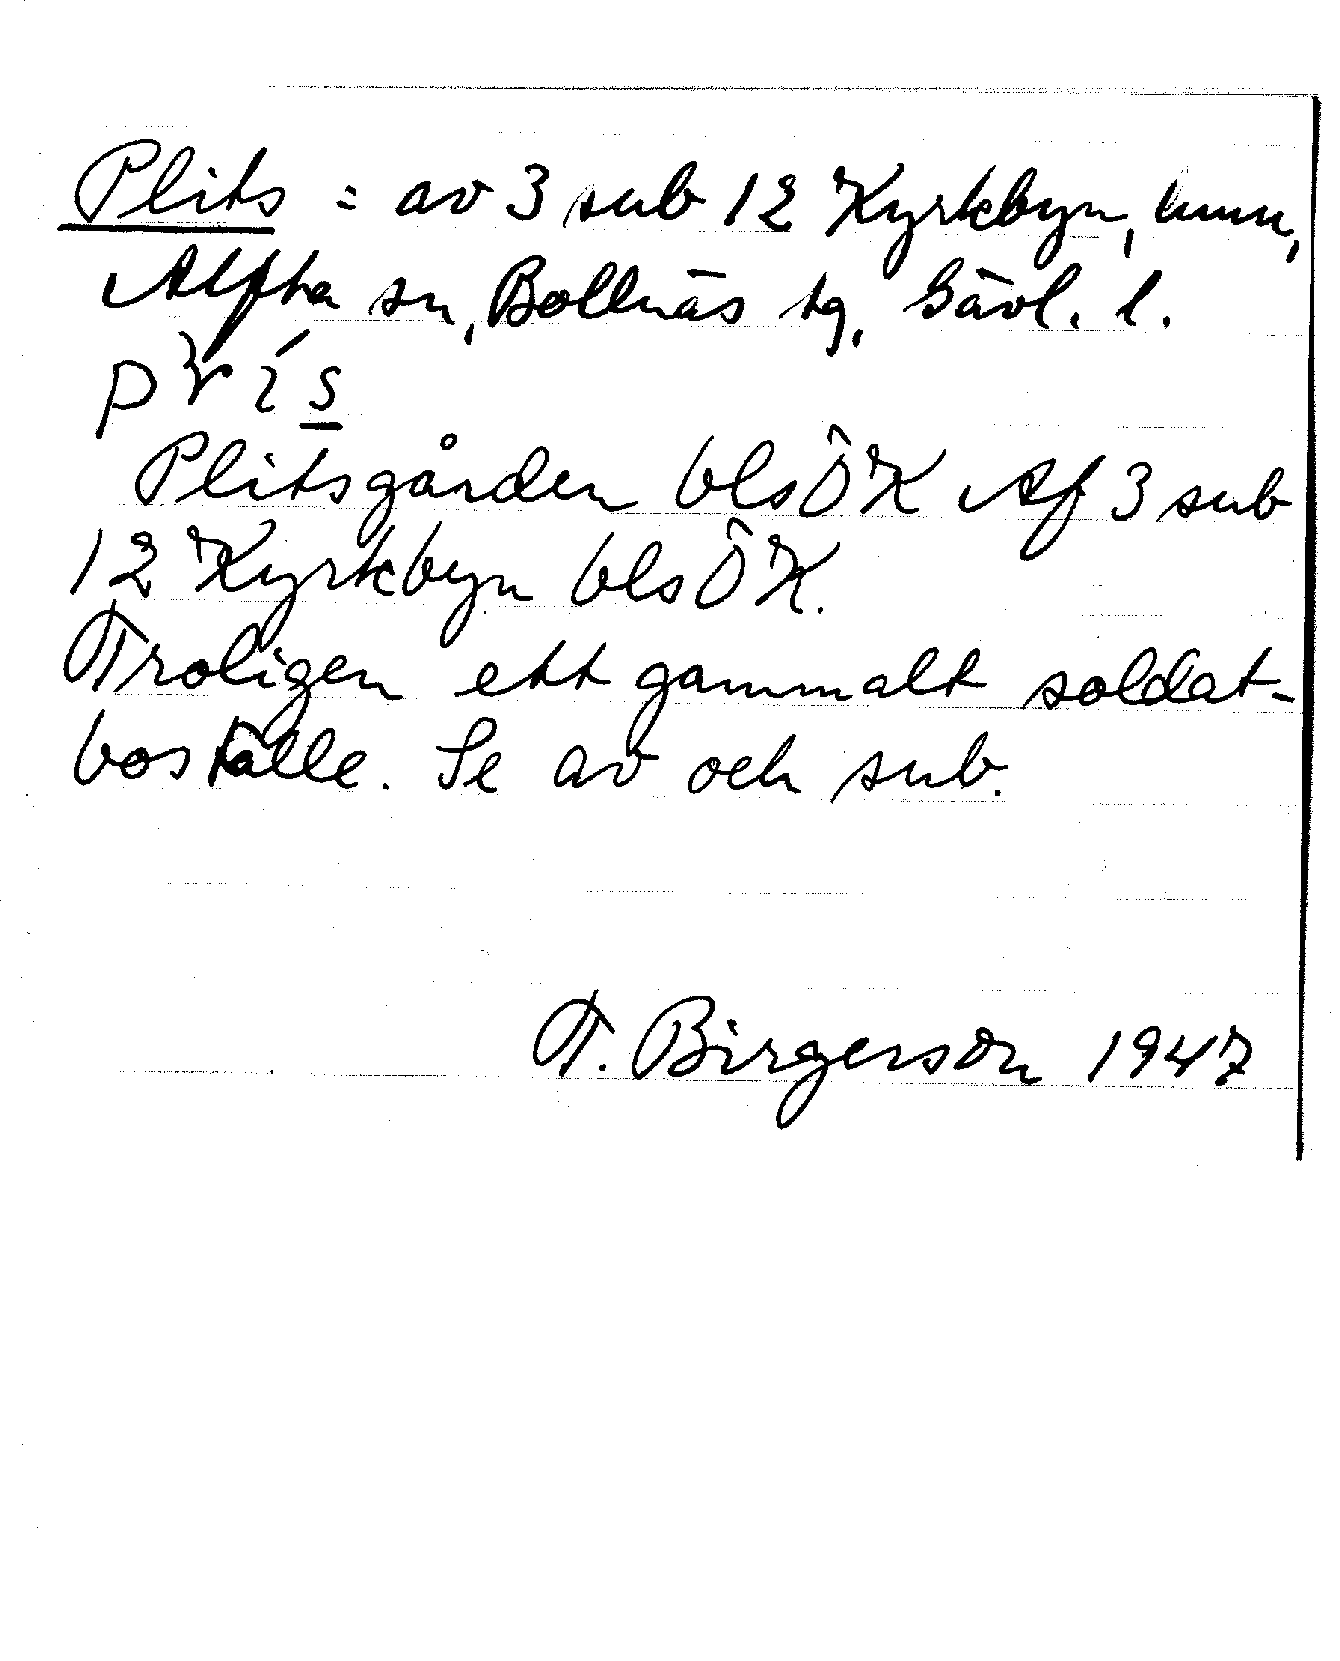 Plits = av 3 sub 12 Kyrkbyn, hmn,
Alfta sn, Bollnäs tg, Gävl. l.
Plitsgården blsÖK Af 3 sub
12 Kyrkbyn blsÖK.
Troligen ett gammalt soldat-
boställe. Se av och sub.
T. Birgerson 1947